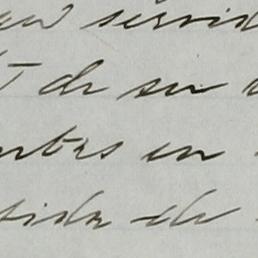 servid
de su
ntes en
tida de